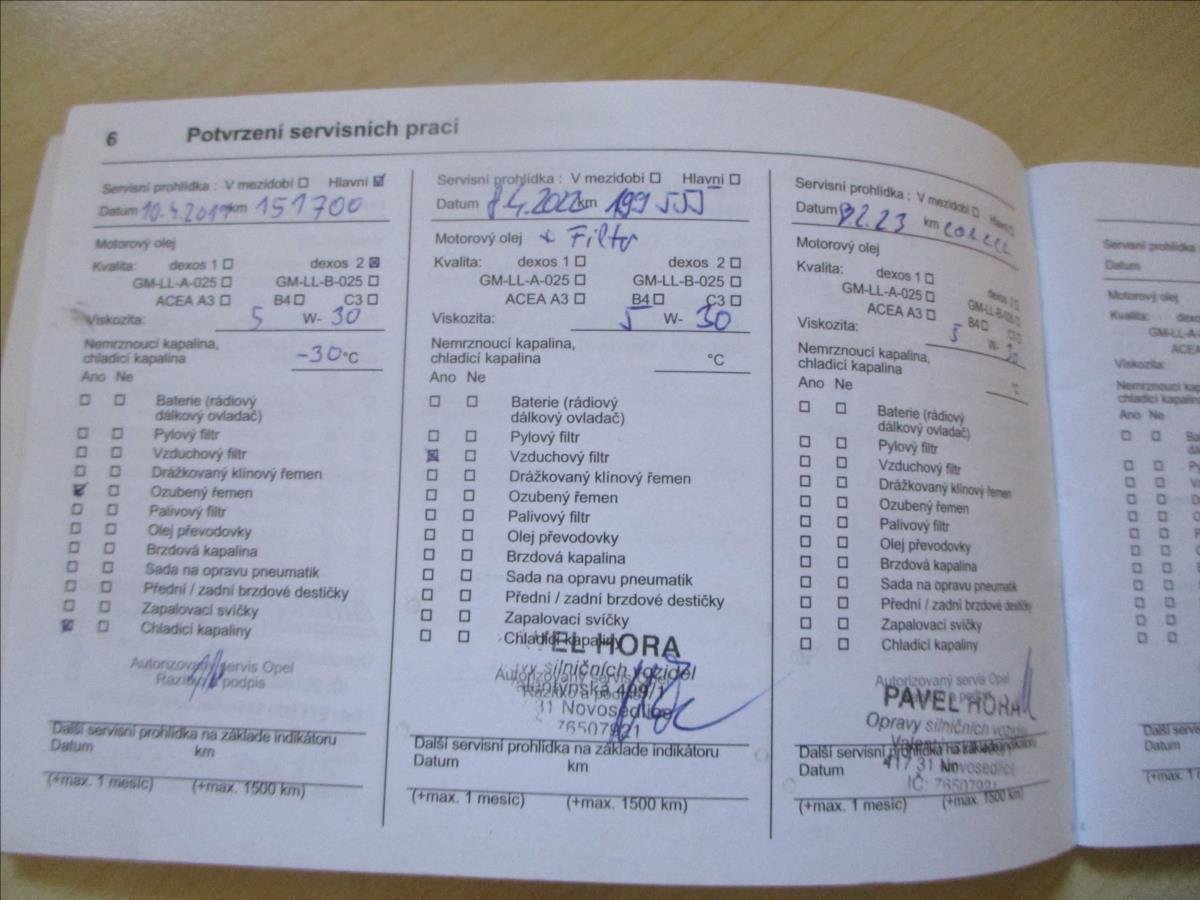 6 Potvrzení servisních prací
Servisní prohlídka : V mezidobí ☐ Hlavní ☑
Datum 10.4.2019 km 151700
Motorový olej
Kvalita: dexos 1 ☐ dexos 2 ☒
GM-LL-A-025 ☐ GM-LL-B-025 ☐
ACEA A3 ☐ B4 ☐ C3 ☐
Viskozita: 5 W- 30
Nemrznoucí kapalina,
chladicí kapalina -30 °C
Ano Ne
☐ ☐ Baterie (rádiový
dálkový ovladač)
☐ ☐ Pylový filtr
☐ ☐ Vzduchový filtr
☐ ☐ Drážkovaný klínový řemen
☑ ☐ Ozubený řemen
☐ ☐ Palivový filtr
☐ ☐ Olej převodovky
☐ ☐ Brzdová kapalina
☐ ☐ Sada na opravu pneumatik
☐ ☐ Přední / zadní brzdové destičky
☐ ☐ Zapalovací svíčky
☒ ☐ Chladicí kapaliny
Autorizovaný servis Opel
Razítko podpis
Další servisní prohlídka na základe indikátoru
Datum km
(+max. 1 mesíc) (+max. 1500 km)
Servisní prohlídka : V mezidobí ☐ Hlavní ☐
Datum 8.4.2022 km 199 555
Motorový olej + Filtr
Kvalita: dexos 1 ☐ dexos 2 ☐
GM-LL-A-025 ☐ GM-LL-B-025 ☐
ACEA A3 ☐ B4 ☐ C3 ☐
Viskozita: 5 W- 30
Nemrznoucí kapalina,
chladicí kapalina °C
Ano Ne
☐ ☐ Baterie (rádiový
dálkový ovladač)
☐ ☐ Pylový filtr
☒ ☐ Vzduchový filtr
☐ ☐ Drážkovaný klínový řemen
☐ ☐ Ozubený řemen
☐ ☐ Palivový filtr
☐ ☐ Olej převodovky
☐ ☐ Brzdová kapalina
☐ ☐ Sada na opravu pneumatik
☐ ☐ Přední / zadní brzdové destičky
☐ ☐ Zapalovací svíčky
☐ ☐ Chladicí kapaliny
EL HORA
silničních vozidel
Autorizovaný servis
Razítko a podpis
499/1
31 Novosedlice
76507921
Další servisní prohlídka na základe indikátoru
Datum km
(+max. 1 mesíc) (+max. 1500 km)
Servisní prohlídka : V mezidobí ☐ Hlavní ☐
Datum 8.2.23 km
Motorový olej
Kvalita: dexos 1 ☐ dexos 2 ☐
GM-LL-A-025 ☐ GM-LL-B-025 ☐
ACEA A3 ☐ B4 ☐ C3 ☐
Viskozita: 5 W- 30
Nemrznoucí kapalina,
chladicí kapalina °C
Ano Ne
☐ ☐ Baterie (rádiový
dálkový ovladač)
☐ ☐ Pylový filtr
☐ ☐ Vzduchový filtr
☐ ☐ Drážkovaný klínový řemen
☐ ☐ Ozubený řemen
☐ ☐ Palivový filtr
☐ ☐ Olej převodovky
☐ ☐ Brzdová kapalina
☐ ☐ Sada na opravu pneumatik
☐ ☐ Přední / zadní brzdové destičky
☐ ☐ Zapalovací svíčky
☐ ☐ Chladicí kapaliny
Autorizovaný servis Opel
PAVEL HORA
Opravy silničních vozidel
Další servisní prohlídka na základe indikátoru
417 31 Novosedlice
Datum km
IČ: 76507921
(+max. 1 mesíc) (+max. 1500 km)
Servisní prohlídka
Datum
Motorový olej
Kvalita:
Viskozita:
Nemrznoucí
chladicí kapalina
Ano Ne
Datum
(+max. 1